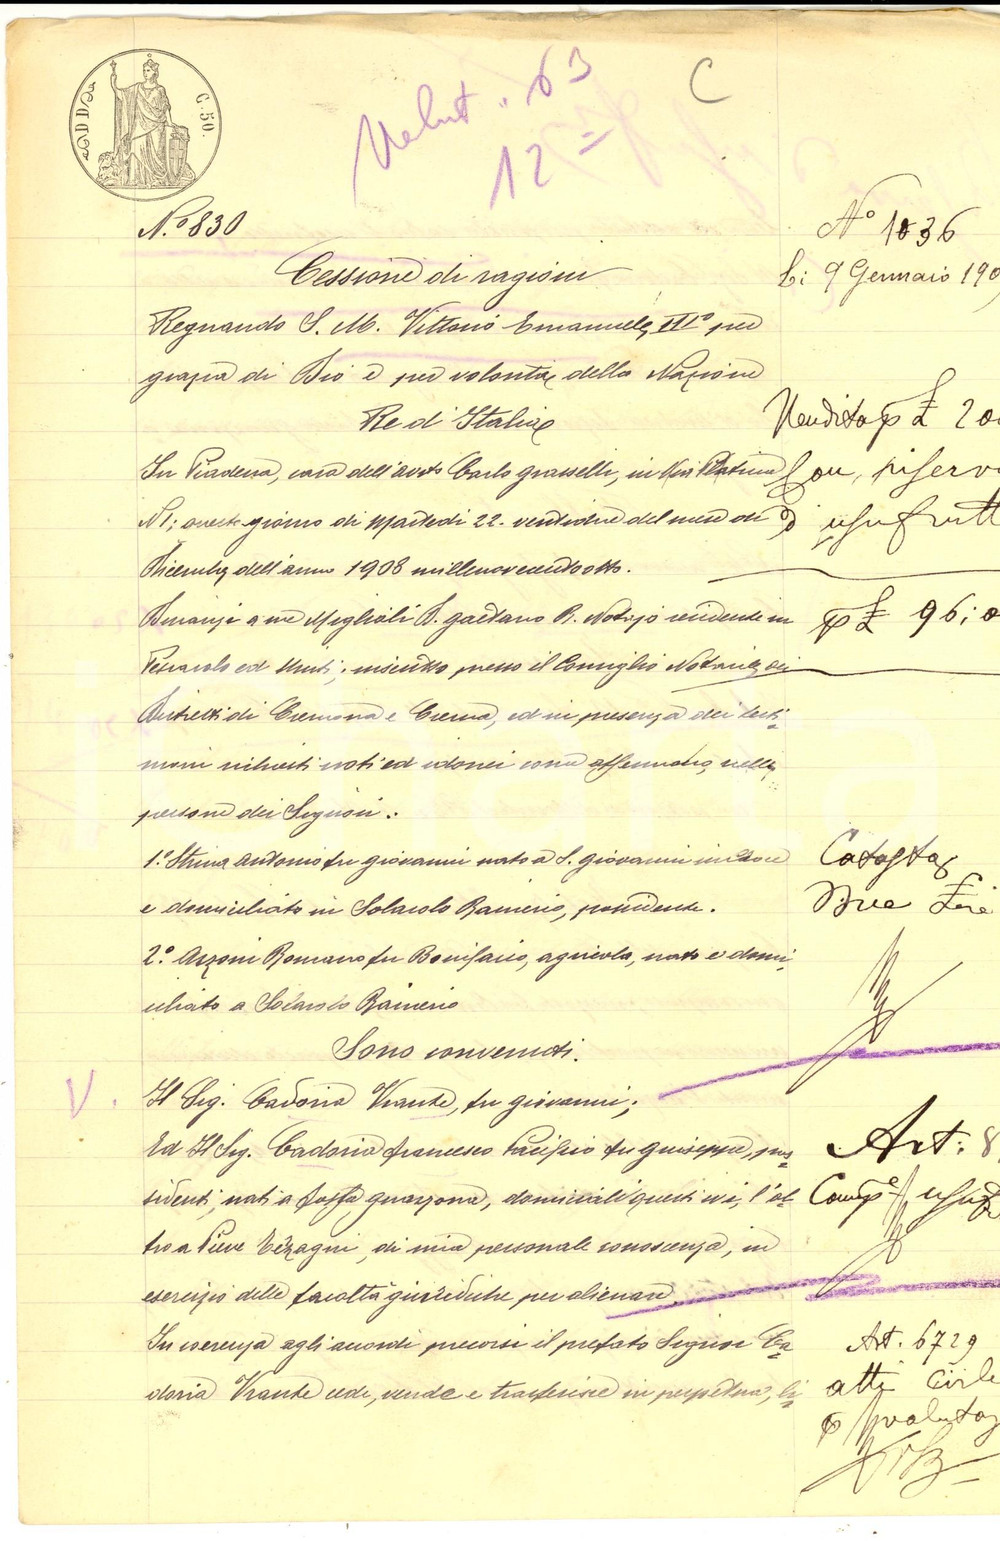 C. 50.
Valut. 63
12
C
N.º 830
Nº 1036
Li 9 Gennaio 190
Cessione di ragioni
Regnando S. M. Vittorio Emanuele IIIº per
grazia di Dio e per volontà della Nazione
Re d'Italia
In Piadena, casa dell'avvto Carlo Grasselli, in Via Platina
N 1; questo giorno di Martedì 22. ventidue del mese di
Dicembre dell'anno 1908 millenovecentootto.
Dinanzi a me Miglioli D. Gaetano R. Notajo residente in
Pescarolo ed Uniti, inscritto presso il Consiglio Notarile dei
Distretti di Cremona e Crema, ed in presenza dei testi-
moni richiesti noti ed idonei come affermano, nelle
persone dei Signori:
1.º Strina Antonio fu Giovanni nato a S. Giovanni in Croce
e domiciliato in Solarolo Rainerio, possidente.
2.º Azzoni Romano fu Bonifacio, agricola, nato e domi-
ciliato a Solarolo Rainerio
Sono convenuti.
V.
Il Sig. Cadoria Vrante, fu Giovanni;
Ed Il Sig. Cadoria Francesco Pacifico fu Giuseppe, pos-
sidenti, nati a Fossa Guazzona, domiciliati questi ivi, l'al-
tro a Pieve Terzagni, di mia personale conoscenza, in
esercizio delle facoltà giuridiche per alienare.
In coerenza agli accordi precorsi il prefato Signor Ca-
doria Vrante cede, vende e trasferisce in perpetua, li-
Vendita p £ 20
con riserv
d usufrutt
p £ 96; 0
Catasta
Due Lire
Art: 8
Comp.e usuf
Art. 6729
atti civile
p valuta